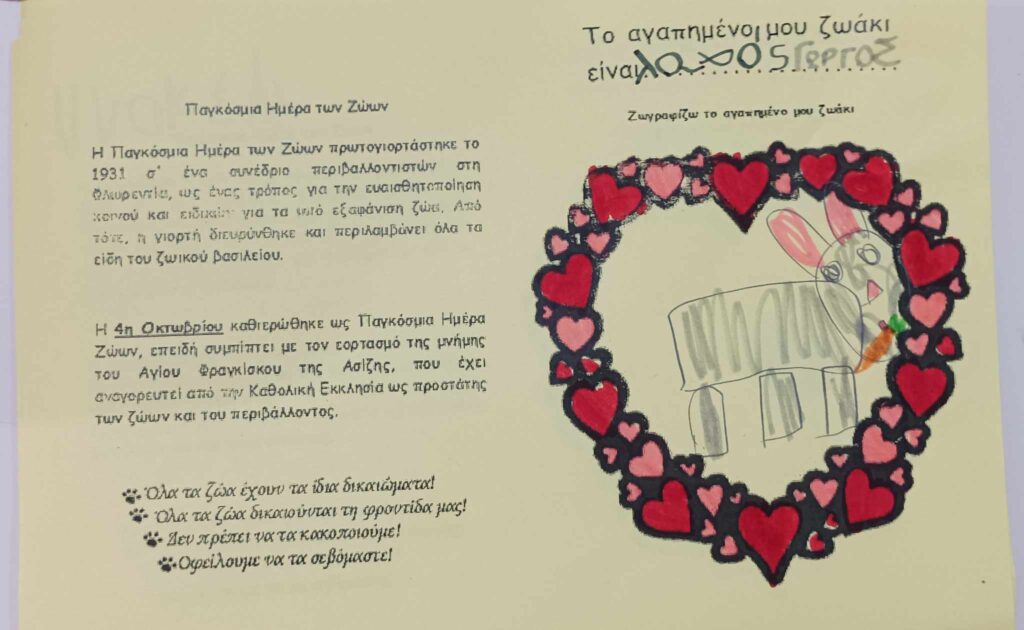 Παγκόσμια Ημέρα των Ζώων
Η Παγκόσμια Ημέρα των Ζώων πρωτογιορτάστηκε το
1931 σ' ένα συνέδριο περιβαλλοντιστών στη
Φλωρεντία, ως ένας τρόπος για την ευαισθητοποίηση
κοινού και ειδικών για τα υπό εξαφάνιση ζώα. Από
τότε, η γιορτή διευρύνθηκε και περιλαμβάνει όλα τα
είδη του ζωικού βασιλείου.
Η 4η Οκτωβρίου καθιερώθηκε ως Παγκόσμια Ημέρα
Ζώων, επειδή συμπίπτει με τον εορτασμό της μνήμης
του Αγίου Φραγκίσκου της Ασίζης, που έχει
αναγορευτεί από την Καθολική Εκκλησία ως προστάτης
των ζώων και του περιβάλλοντος.
Όλα τα ζώα έχουν τα ίδια δικαιώματα!
Όλα τα ζώα δικαιούνται τη φροντίδα μας!
Δεν πρέπει να τα κακοποιούμε!
Οφείλουμε να τα σεβόμαστε!
Το αγαπημένο μου ζωάκι
είναι λαγος
Ζωγραφίζω το αγαπημένο μου ζωάκι